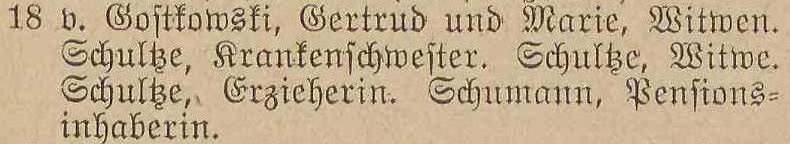 18 v. Gostkowski, Gertrud und Marie, Witwen.
Schultze, Krankenschwester. Schultze, Witwe.
Schultze, Erzieherin. Schumann, Pensions-
inhaberin.